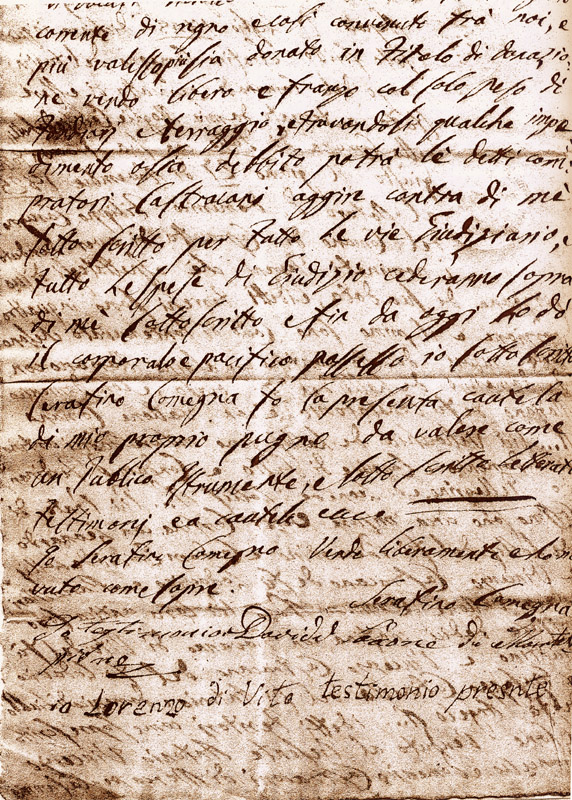 corrente di regno e così convenuto trà noi, e
più valesse sia donato in titolo di donazio
ne vendo libero e franco col solo peso di
terraggio, e trovandosi qualche impe
dimento ossia debbito potrà lè detti com
pratori Castracani aggire contra di mè
sotto scritto per tutto le vie Giudiziario, e
tutto le spese di Giudizio cederanno sopra
di mè sottoscritto e fin da oggi lo dò
il corporale e pacifico possesso io sotto scritto
Serafino Comegna fo la presenta cautela
di mio proprio pugno da valere come
un Publico Istrumente, e sotto scritta
testimonj ea cautele
Io Serafino Comegna Vendo liberamente e
vuto come sopre.
Serafino Comegna
Io testimonio David di

io Lorenzo di Vito testimonio presente